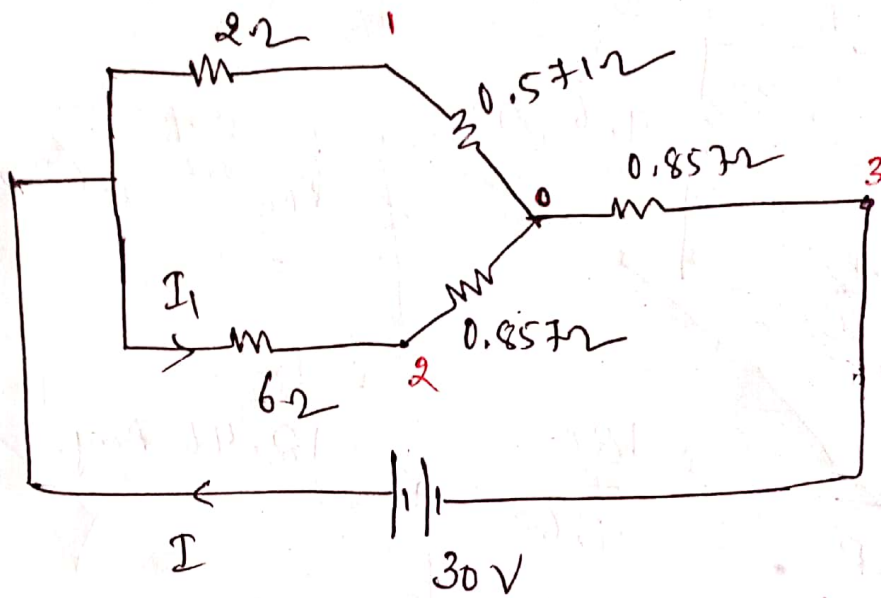 2Ω
1
0.571Ω
0.857Ω
3
0
I₁
0.857Ω
2
6Ω
I
30 V